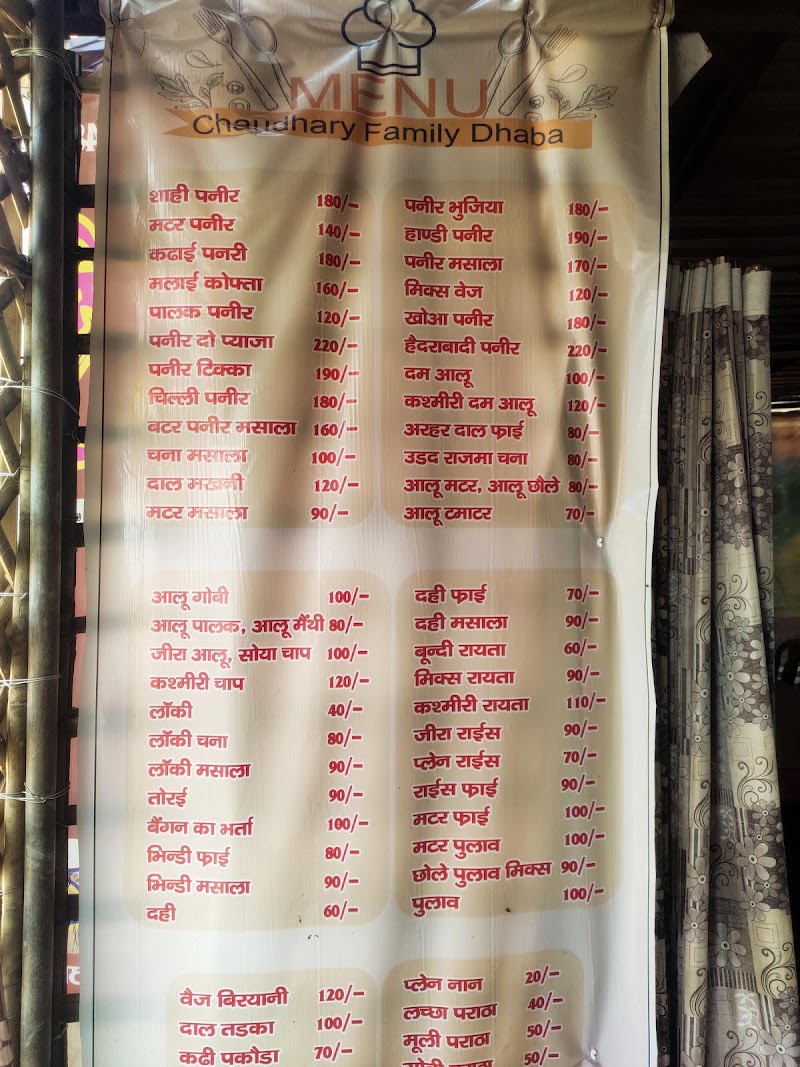 MENU
Chaudhary Family Dhaba
शाही पनीर 180/-
मटर पनीर 140/-
कढाई पनरी 180/-
मलाई कोफ्ता 160/-
पालक पनीर 120/-
पनीर दो प्याजा 220/-
पनीर टिक्का 190/-
चिल्ली पनीर 180/-
बटर पनीर मसाला 160/-
चना मसाला 100/-
दाल मखनी 120/-
मटर मसाला 90/-
पनीर भुजिया 180/-
हाण्डी पनीर 190/-
पनीर मसाला 170/-
मिक्स वेज 120/-
खोआ पनीर 180/-
हैदराबादी पनीर 220/-
दम आलू 100/-
कश्मीरी दम आलू 120/-
अरहर दाल फ्राई 80/-
उडद राजमा चना 80/-
आलू मटर, आलू छौले 80/-
आलू टमाटर 70/-
आलू गोबी 100/-
आलू पालक, आलू मैंथी 80/-
जीरा आलू, सोया चाप 100/-
कश्मीरी चाप 120/-
लॉकी 40/-
लॉकी चना 80/-
लॉकी मसाला 90/-
तोरई 90/-
बैंगन का भर्ता 100/-
भिन्डी फ्राई 80/-
भिन्डी मसाला 90/-
दही 60/-
दही फ्राई 70/-
दही मसाला 90/-
बून्दी रायता 60/-
मिक्स रायता 90/-
कश्मीरी रायता 110/-
जीरा राईस 90/-
प्लेन राईस 70/-
राईस फ्राई 90/-
मटर फ्राई 100/-
मटर पुलाव 100/-
छोले पुलाव मिक्स 90/-
पुलाव 100/-
वैज बिरयानी 120/-
दाल तडका 100/-
कढी पकौडा 70/-
प्लेन नान 20/-
लच्छा पराठा 40/-
मूली पराठा 50/-
50/-